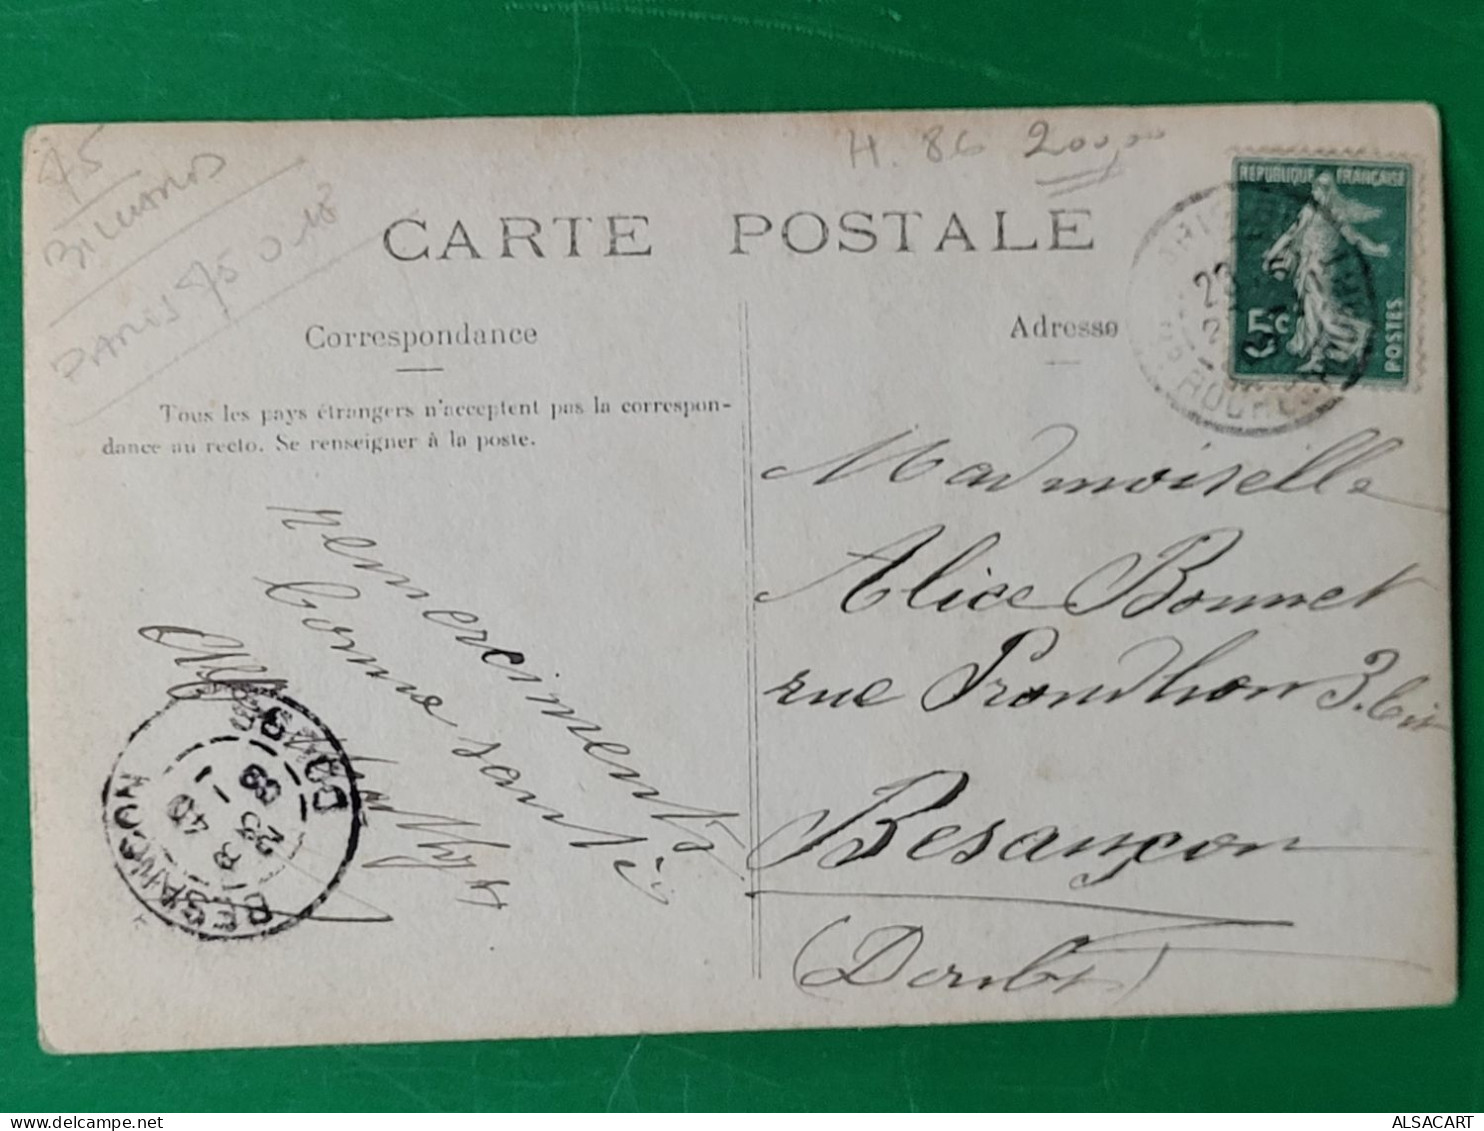 75
BILLARDS
PARIS 75 018
H. 86 200,00
CARTE POSTALE
REPUBLIQUE FRANÇAISE
5c
POSTES
Correspondance
Tous les pays étrangers n'acceptent pas la correspon-
dance au recto. Se renseigner à la poste.
remerciments
bonne santé
BESANCON
DOUBS
23
Adresse
Mademoiselle
Alice Bonnet
rue Proudhon 3.bis
Besançon
(Doubs)
ALSACART